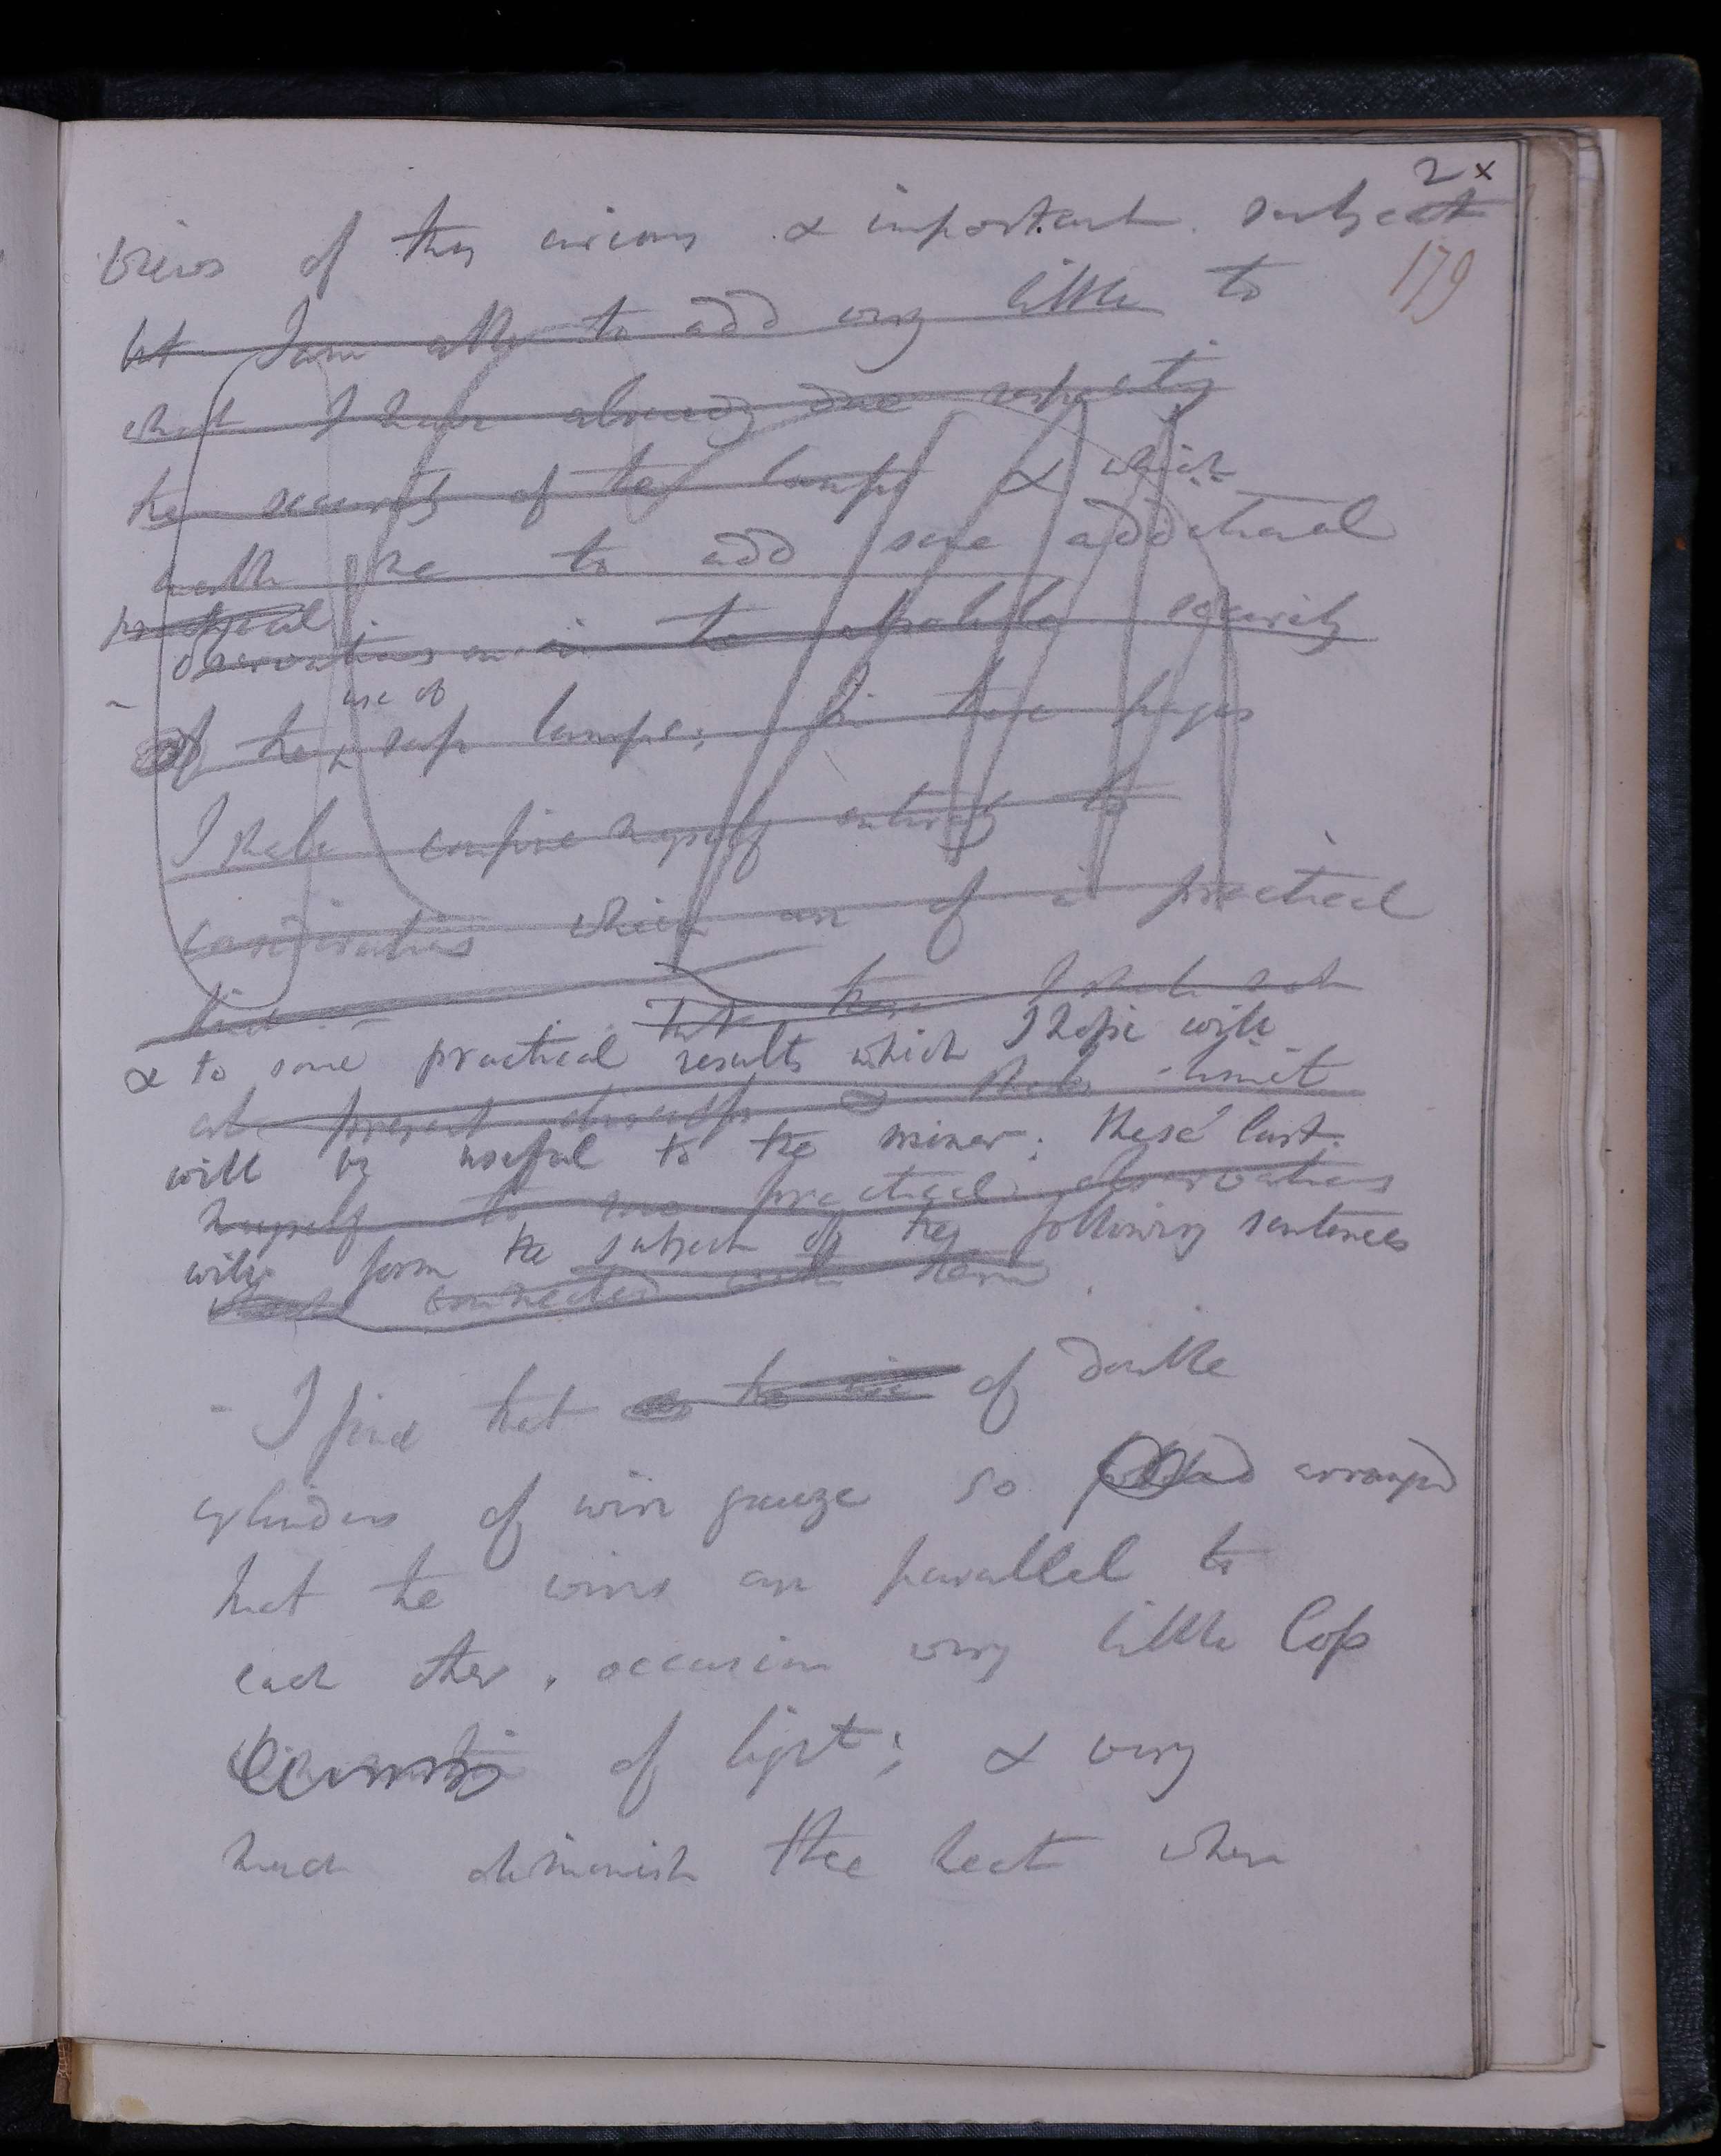 2 x
views of this curious & important subject
179
but I am able to add very little to
what I have already done respecting
the security of the lamps & which
enable me to add some additional
practical
observations on the absolute security
use of
of the safe lamps; In these pages
I shall confine myself entirely to
considerations which are of a practical
kind. –
these I shall not
& to some practical results which I hope will
at present discuss & shall limit
will be useful to the miner; these last
myself to some practical observations
will form the subject of the following sentences
connected with them
- I find that the use of double
cylinders of wire gauze so arranged
that the wires are parallel to
each other, occasion very little loss
of light; & very
much diminish the heat when